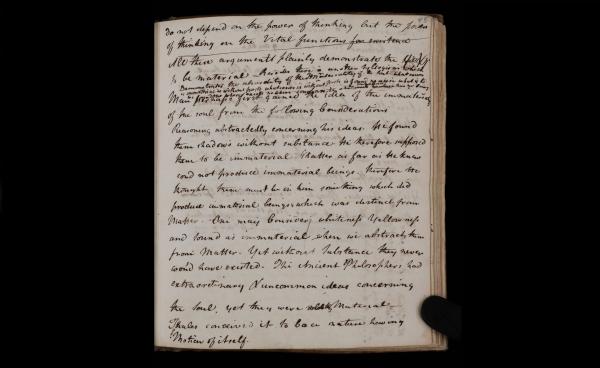 do not depend on the power of thinking but the power
of thinking on the Vital functions for existence
All these arguments plainly demonstrate the
to be material. Besides there is another Syllogism which
Demonstrates the absurdity of the Immateriality of the Soul whatsoever
is immaterial is without parts whatsoever is without parts is
Man perhaps first gained the idea of the immateriality
of the soul from the following Considerations
Reasoning abstractedly concerning his ideas. He found
them shadows without substance He therefore supposed
them to be immaterial. Matter as far as he knew
coud not produce immaterial beings. therefore he
thought there must be in him something which did
produce immaterial beings & which was distinct from
Matter. One may Consider, whiteness Yellowness
and sound as immaterial when we abstract them
from Matter. Yet without Substance they never
woud have existed. The Ancient Philosophers, had
extraordinary & uncommon ideas concerning
the Soul, yet they were Material
Thales conceived it to be a nature having
Motion of itself.